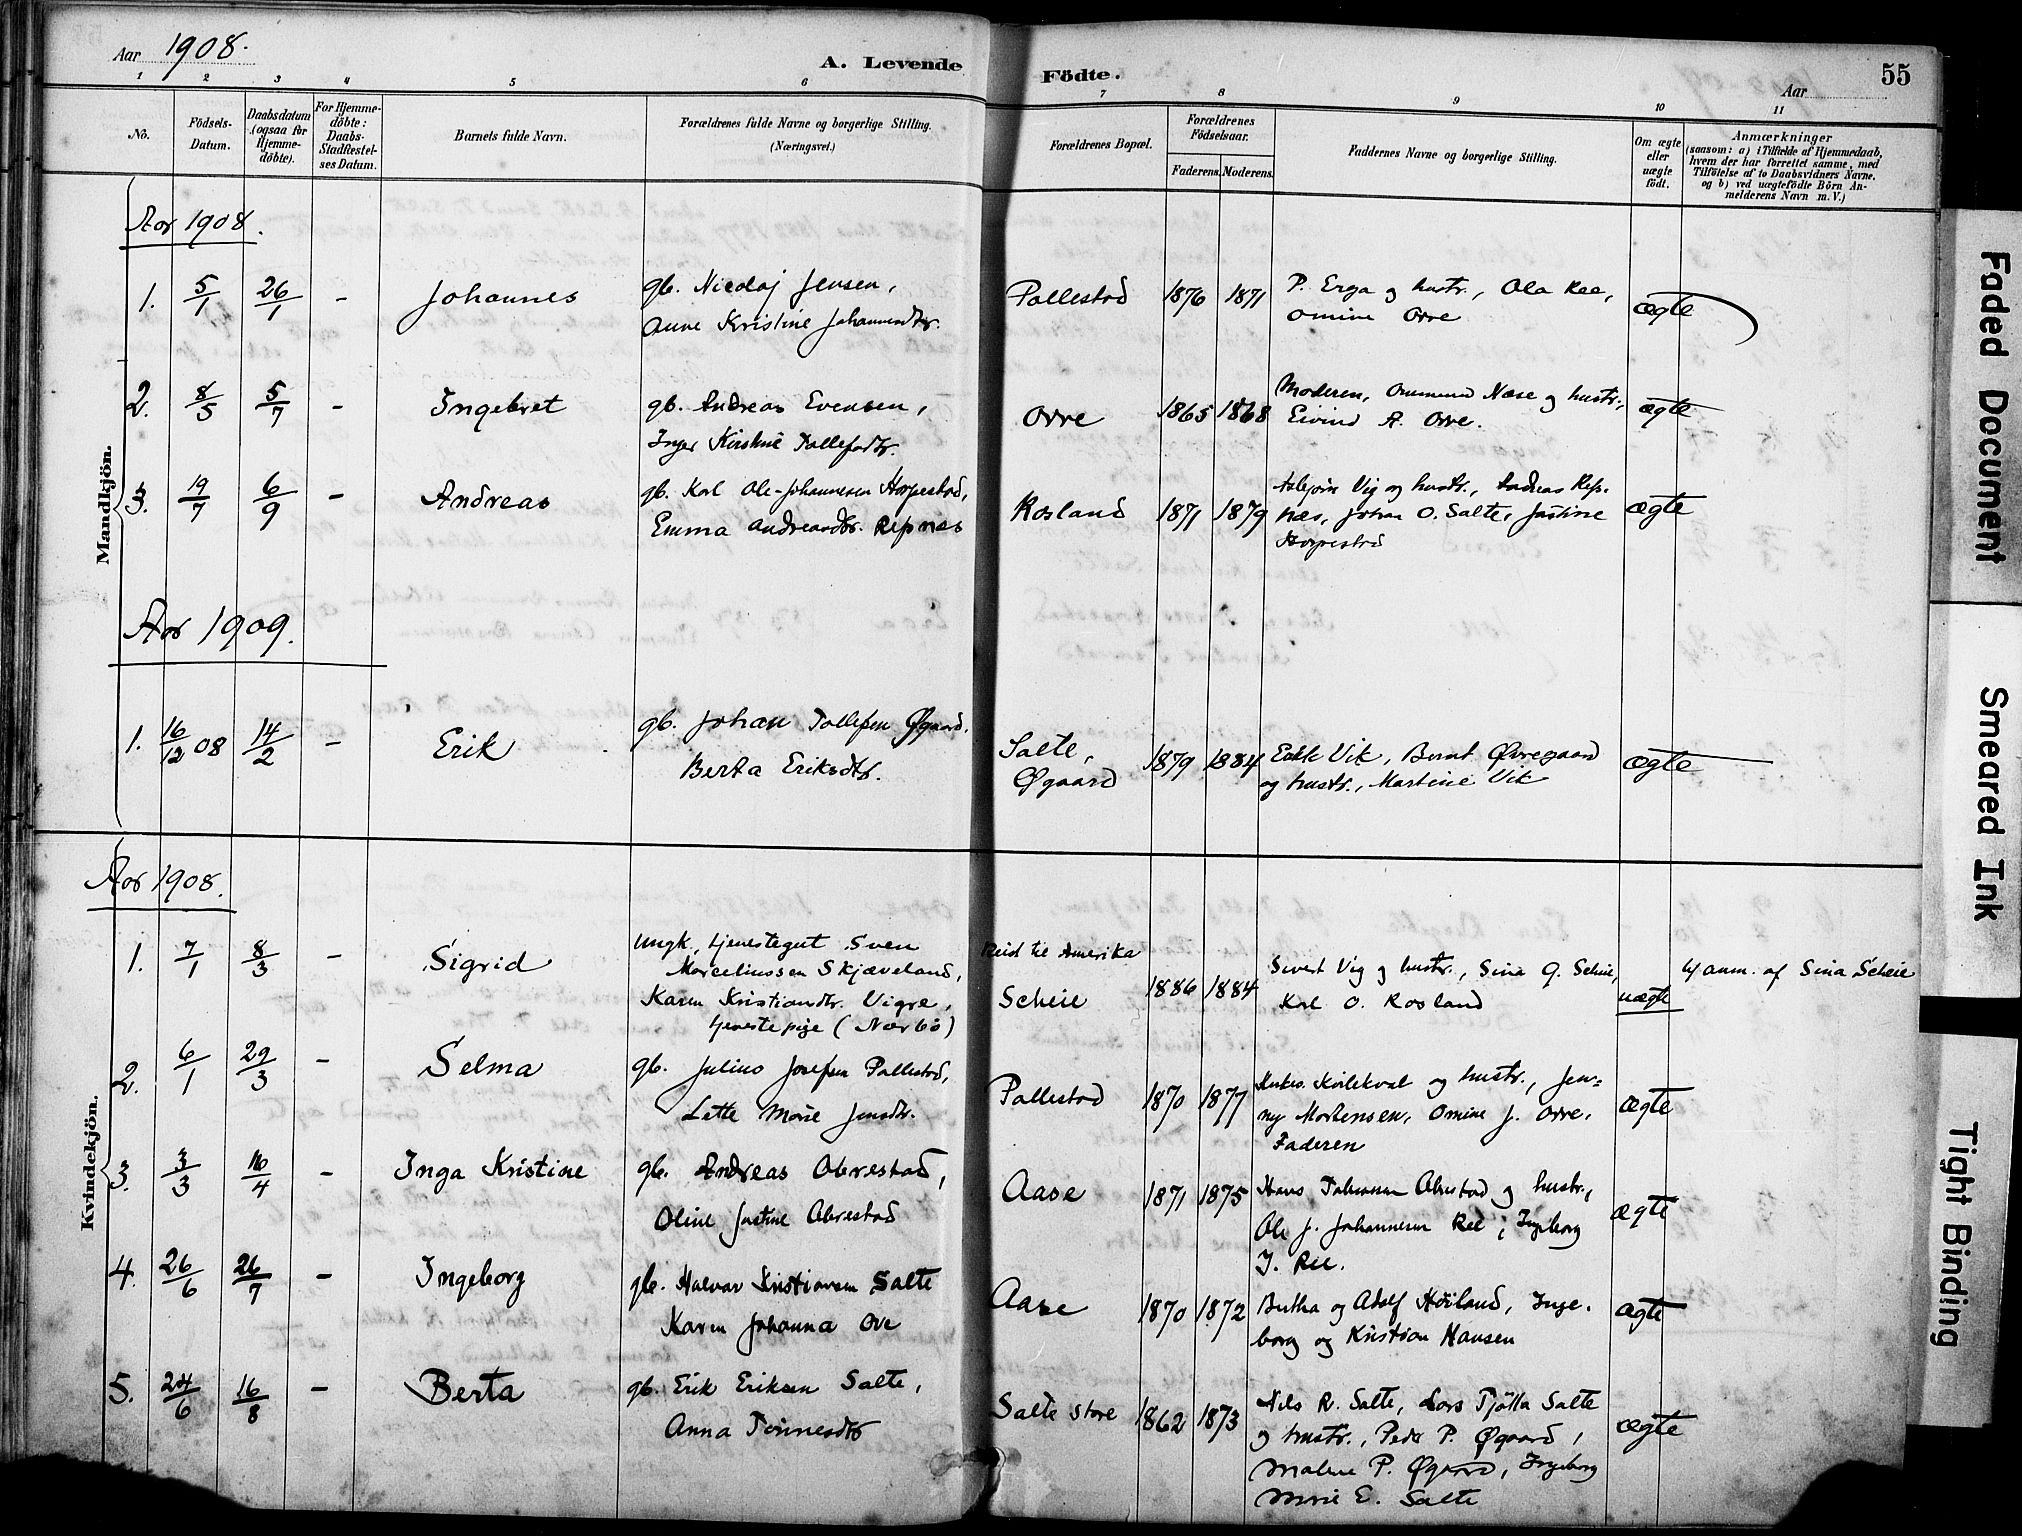 Aar 1908.
A. Levende Födte.
Aar
55
1 2 3 4 5 6 7 8 9 10 11
No.
Födsels-Datum.
Daabsdatum (ogsaa for Hjemme-döbte).
For Hjemme-döbte: Daabs-Stadfæstel-ses Datum.
Barnets fulde Navn.
Forældrenes fulde Navne og borgerlige Stilling. (Næringsvei.)
Forældrenes Bopæl.
Forældrenes Födselsaar.
Faderens. Moderens.
Faddernes Navne og borgerlige Stilling.
Om ægte eller uægte födt.
Anmærkninger
(saasom: a) i Tilfælde af Hjemmedaab,
hvem der har forrettet samme, med
Tilföielse af to Daabsvidners Navne.
og b) ved uægtefödte Börn An-
melderens Navn m. V.)
Mandkjön.
Aar 1908.
1. 5/1 26/1 - Johannes gb. Nicolaj Jensen, Pollestad 1876 1871 P. Erga og hustr., Ola Ree, ægte
Anne Kristine Johannesdtr. Omine Orre
2. 8/5 5/7 - Ingebret gb. Andreas Evensen, Orre 1865 1868 Moderen, Ommund Næse og hustr., ægte
Inger Kirstine Tollefsdtr. Eivind A. Orre.
3. 19/7 6/9 - Andreas gb. Karl Ole-Johannesen Horpestad, Rosland 1871 1879 Asbjørn Vig og hustr., Andreas Rep- ægte
Emma Andreasdtr. Repnæs næs, Johan O. Salte, Justine
Horpestad
Aar 1909.
1. 16/12 08 14/2 - Erik gb. Johan Tollefsen Øgaard, Salte, 1879 1884 Eskle Vik, Bernt Øvregaard ægte
Berta Eriksdtr. Øgaard og hustr., Martine Vik
Kvindekjön.
Aar 1908.
1. 7/1 8/3 - Sigrid Ungk., tjenestegut Sven Reist til Amerika
Marceliussen Skjæveland, 1886 1884 Sivert Vig og hustr., Sina G. Scheie, uægte Ifl. anm. af Sina Scheie
Karen Kristiandtr. Vigre, Scheie Karl O. Rosland
tjenestepige (Nærbö)
2. 6/1 29/3 - Selma gb. Julius Josefsen Pollestad, Pollestad 1870 1877 Kirkes. Kvilekval og hustr., Jen- ægte
Lette Marie Jensdtr. ny Mortensen, Omine J. Orre,
Faderen
3. 3/3 16/4 - Inga Kristine gb. Andreas Obrestad, Aase 1871 1875 Hans Tobiassen Obrestad og hustr., ægte
Oline Justine Obrestad Ole J. Johannesen Ree, Ingeborg
J. Ree.
4. 26/6 26/7 - Ingeborg gb. Halvar Kristiansen Salte Aase 1870 1872 Bertha og Adolf Höiland, Inge- ægte
Karen Johanna Ove borg og Kristian Hansen
5. 24/6 16/8 - Berta gb. Erik Eriksen Salte, Salte Store 1862 1873 Nils R. Salte, Lars Tjötta Salte ægte
Anna Tönnesdtr og hustr., Peder P. Øgaard,
Malene P. Øgaard, Ingeborg
Marie E. Salte
Faded Document
Smeared Ink
Tight Binding